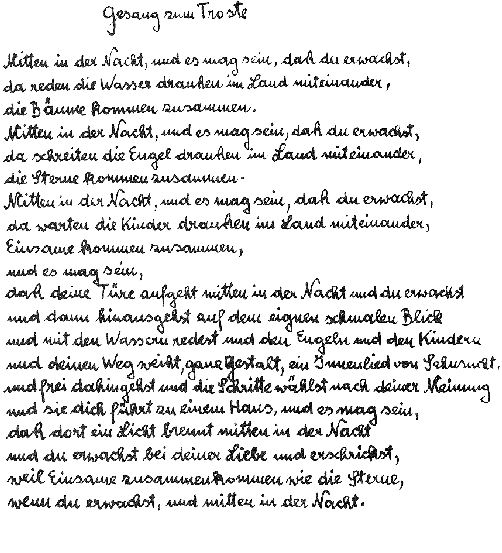 Gesang zum Troste
Mitten in der Nacht, und es mag sein, daß du erwachst,
da reden die Wasser draußen im Land miteinander,
die Bäume kommen zusammen.
Mitten in der Nacht, und es mag sein, daß du erwachst,
da schreiten die Engel draußen im Land miteinander,
die Sterne kommen zusammen.
Mitten in der Nacht, und es mag sein, daß du erwachst,
da warten die Kinder draußen im Land miteinander,
Einsame kommen zusammen,
und es mag sein,
daß deine Türe aufgeht mitten in der Nacht und du erwachst
und dann hinausgehst auf dem eignen schmalen Blick
und mit den Wassern redest und den Engeln und den Kindern
und deinen Weg weißt, ganz Gestalt, ein Innenlied von Sehnsucht,
und frei dahingehst und die Schritte wählst nach deiner Meinung
und sie dich führt zu einem Haus, und es mag sein,
daß dort ein Licht brennt mitten in der Nacht
und du erwachst bei deiner Liebe und erschrickst,
weil Einsame zusammenkommen wie die Sterne,
wenn du erwachst, und mitten in der Nacht.